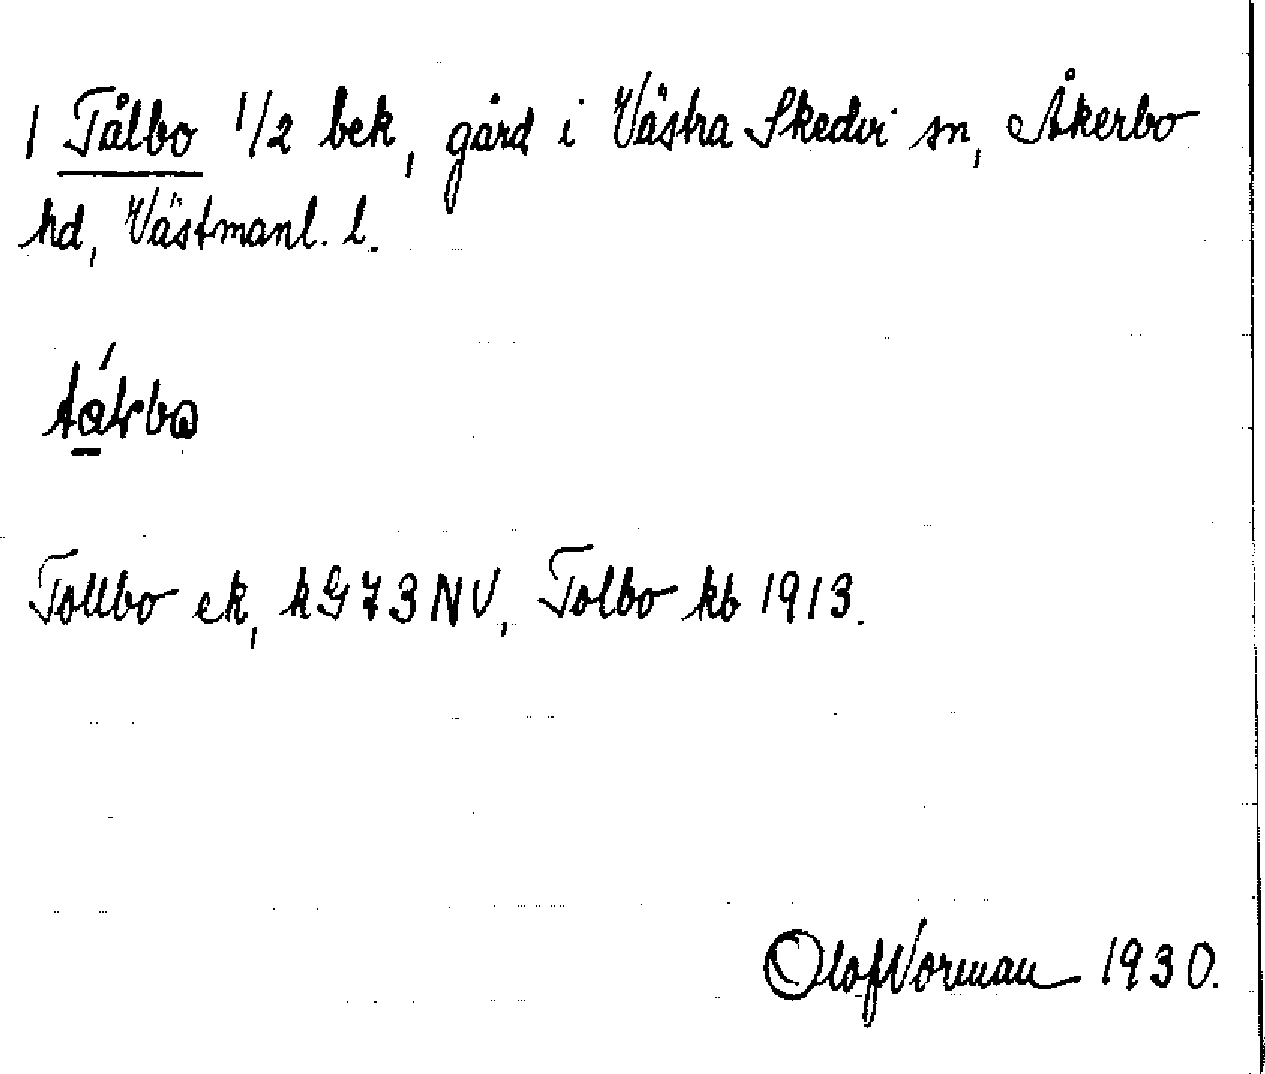 1 Tålbo 1/2 bek, gård i Västra Skedvi sn, Åkerbo
hd, Västmanl. l.
Tollbo ek, kG73NV, Tolbo kb 1913.
Olof Norman 1930.